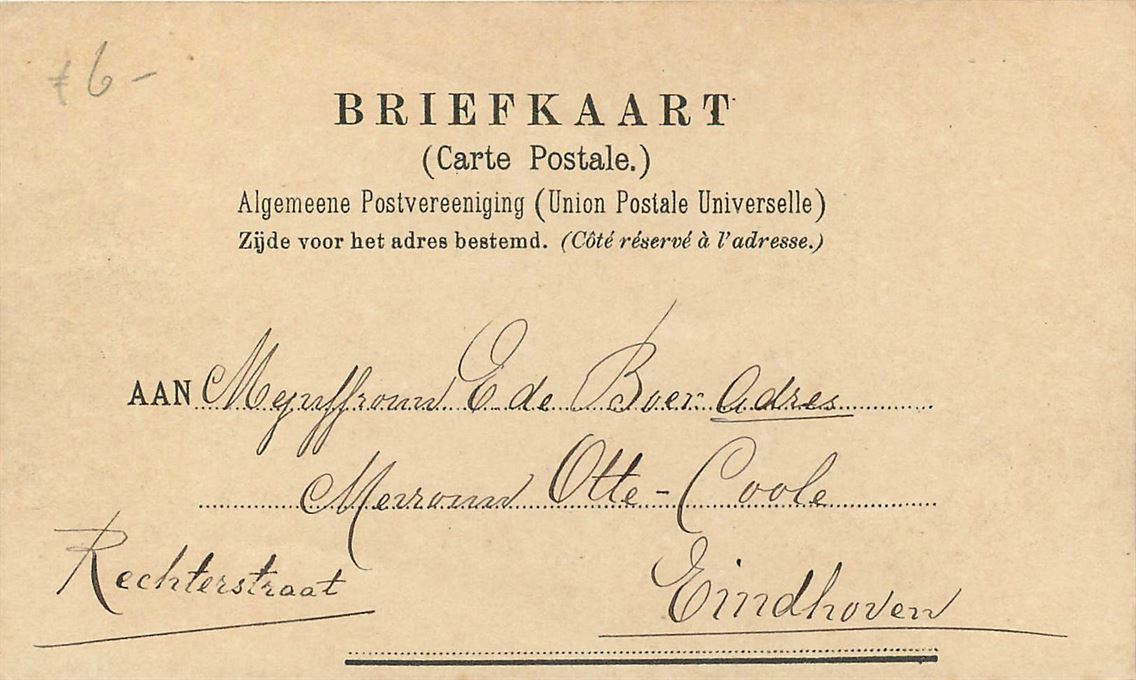 f 6 -
BRIEFKAART
(Carte Postale.)
Algemeene Postvereeniging (Union Postale Universelle)
Zijde voor het adres bestemd. (Côté réservé à l'adresse.)
AAN Mejuffrouw E de Boer Adres
Mevrouw Otte-Coole
Rechterstraat
Eindhoven